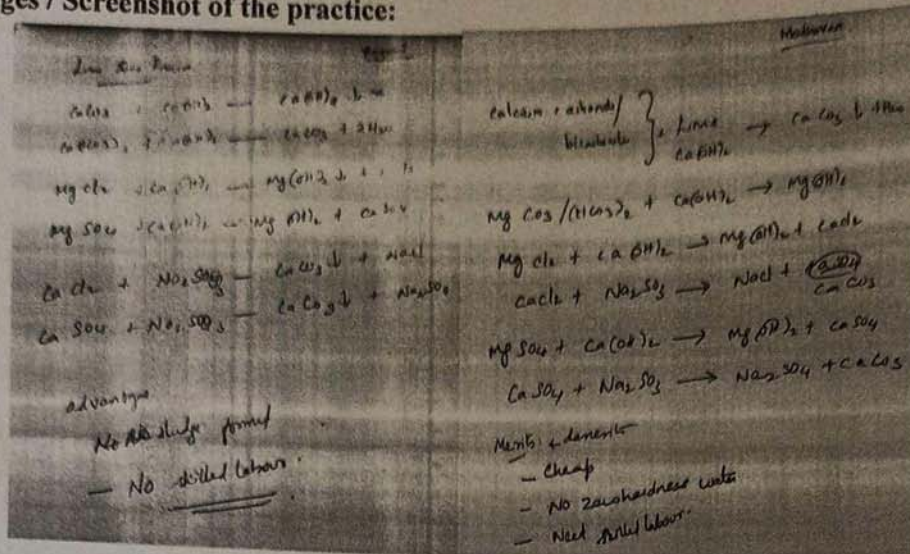 ges / Screenshot of the practice:
Lime Soda Process
Mg Cl2 + Ca(OH)2 — Mg(OH)2 ↓ +
Mg SO4 + Ca(OH)2 — Mg(OH)2 + CaSO4
Ca Cl2 + Na2SO3 — CaCO3 ↓ + NaCl
Ca SO4 + Na2SO3 — CaCO3 ↓ + Na2SO4
advantages
sludge formed
— No skilled labour.
Calcium carbonate/
bicarbonate } + Lime Ca(OH)2 → CaCO3 ↓ + H2O
Mg CO3/(HCO3)2 + Ca(OH)2 → Mg(OH)2
Mg Cl2 + Ca(OH)2 → Mg(OH)2 + CaCl2
CaCl2 + Na2SO3 → NaCl + CaSO4
CaCO3
MgSO4 + Ca(OH)2 → Mg(OH)2 + CaSO4
CaSO4 + Na2SO3 → Na2SO4 + CaCO3
Merits & demerits
- Cheap
- No zerohardness water
- Need skilled labour.